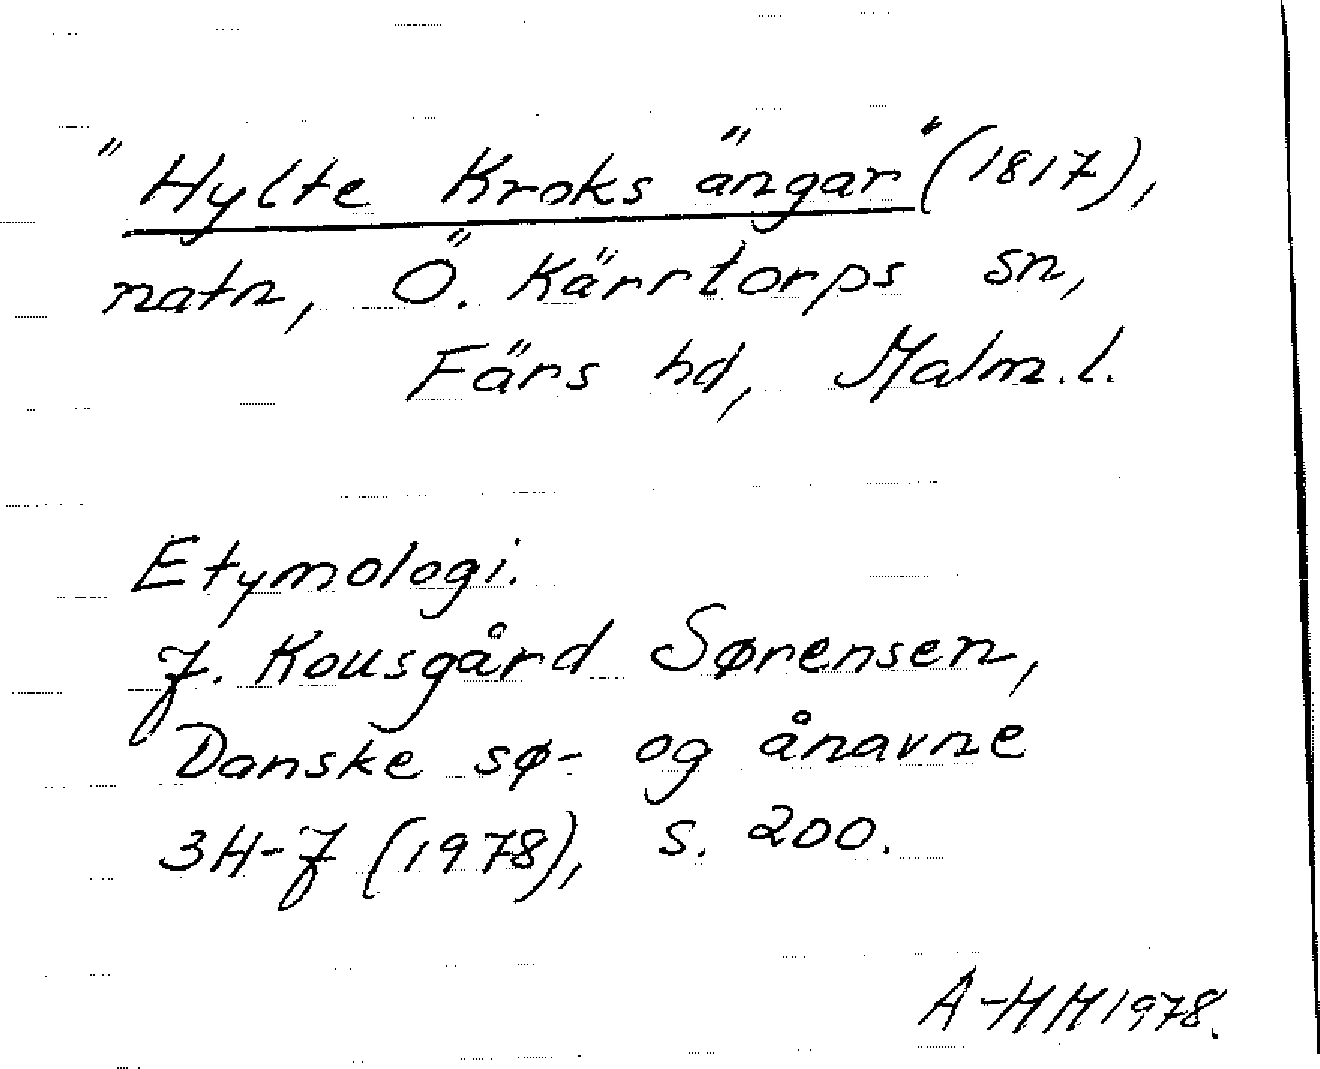 "Hylte Kroks ängar" (1817),
natn, Ö. Kärrtorps sn,
Färs hd, Malm. l.
Etymologi.
J. Kousgård Sørensen,
Danske sø- og ånavne
3H-J (1978), s. 200.
A-HH 1978.